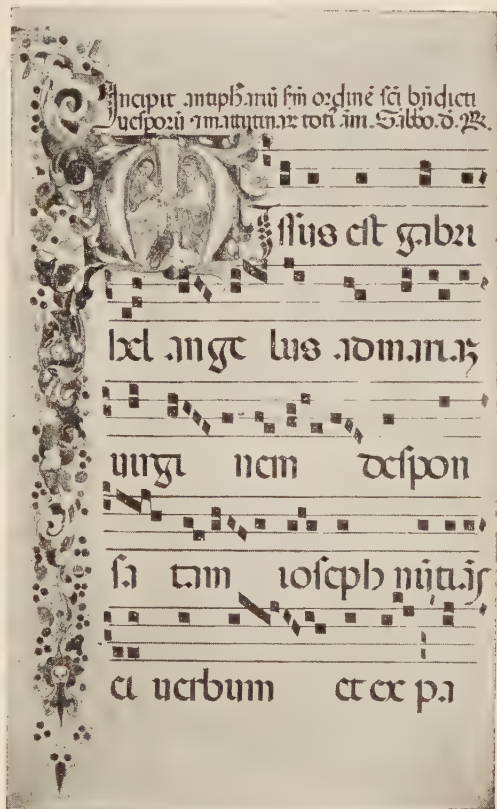 Incipit antiph̄ariū s̄m ordinē sc̄i b̄ndicti
uesporū ⁊ mattutinaꝝ toti᷒ āni. Sabbo. d.
Missus est gabri
hel ange lus ad mariaꝫ
uirgi nem despon
sa tam ioseph nūtiās
ei uerbum et ex pa